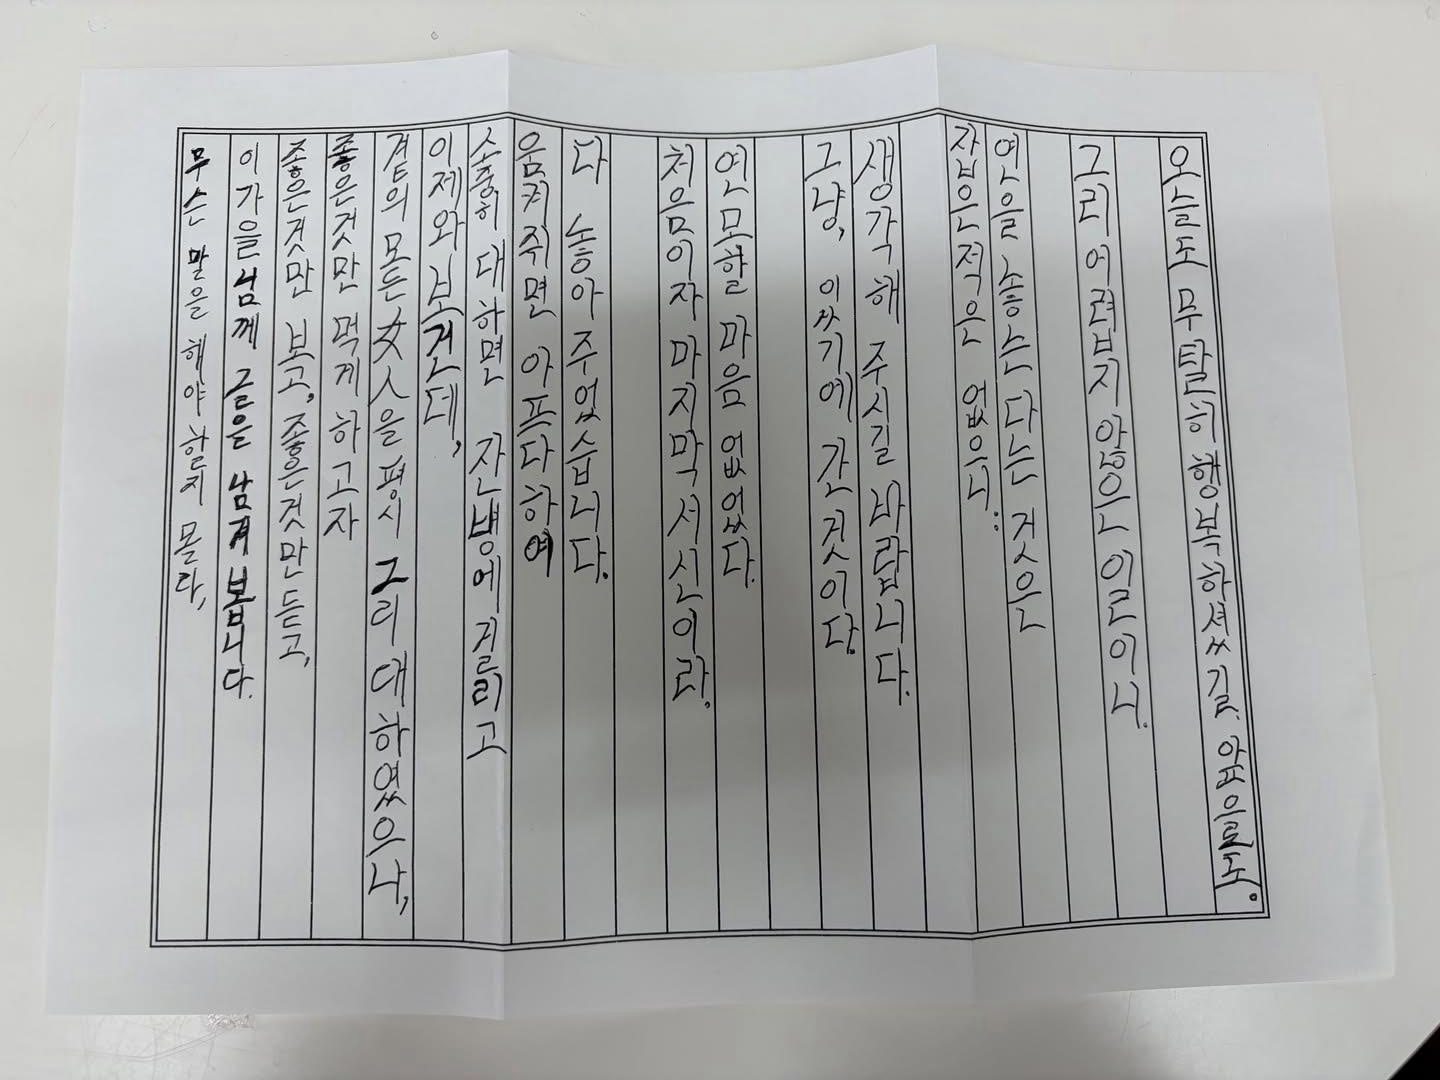 무슨 말을 해야 할지 몰라,
이 가을 님께 글을 남겨 봅니다.
좋은것만 보고, 좋은것만 듣고,
좋은것만 먹게 하고자
곁의 모든 女人을 평시 그리 대하였으나,
이제와 보건데,
소중히 대하면 잔병에 걸리고
움켜쥐면 아프다 하여
다 놓아 주었습니다.
처음이자 마지막 서신이라.
연모할 마음 없었다.
그냥, 있기에 간것이다.
생각해 주시길 바랍니다.
잡은적은 없으니:
연을 놓는다는 것은
그리 어렵지 않은 일이니.
오늘도 무탈히 행복하셨길. 앞으로도.